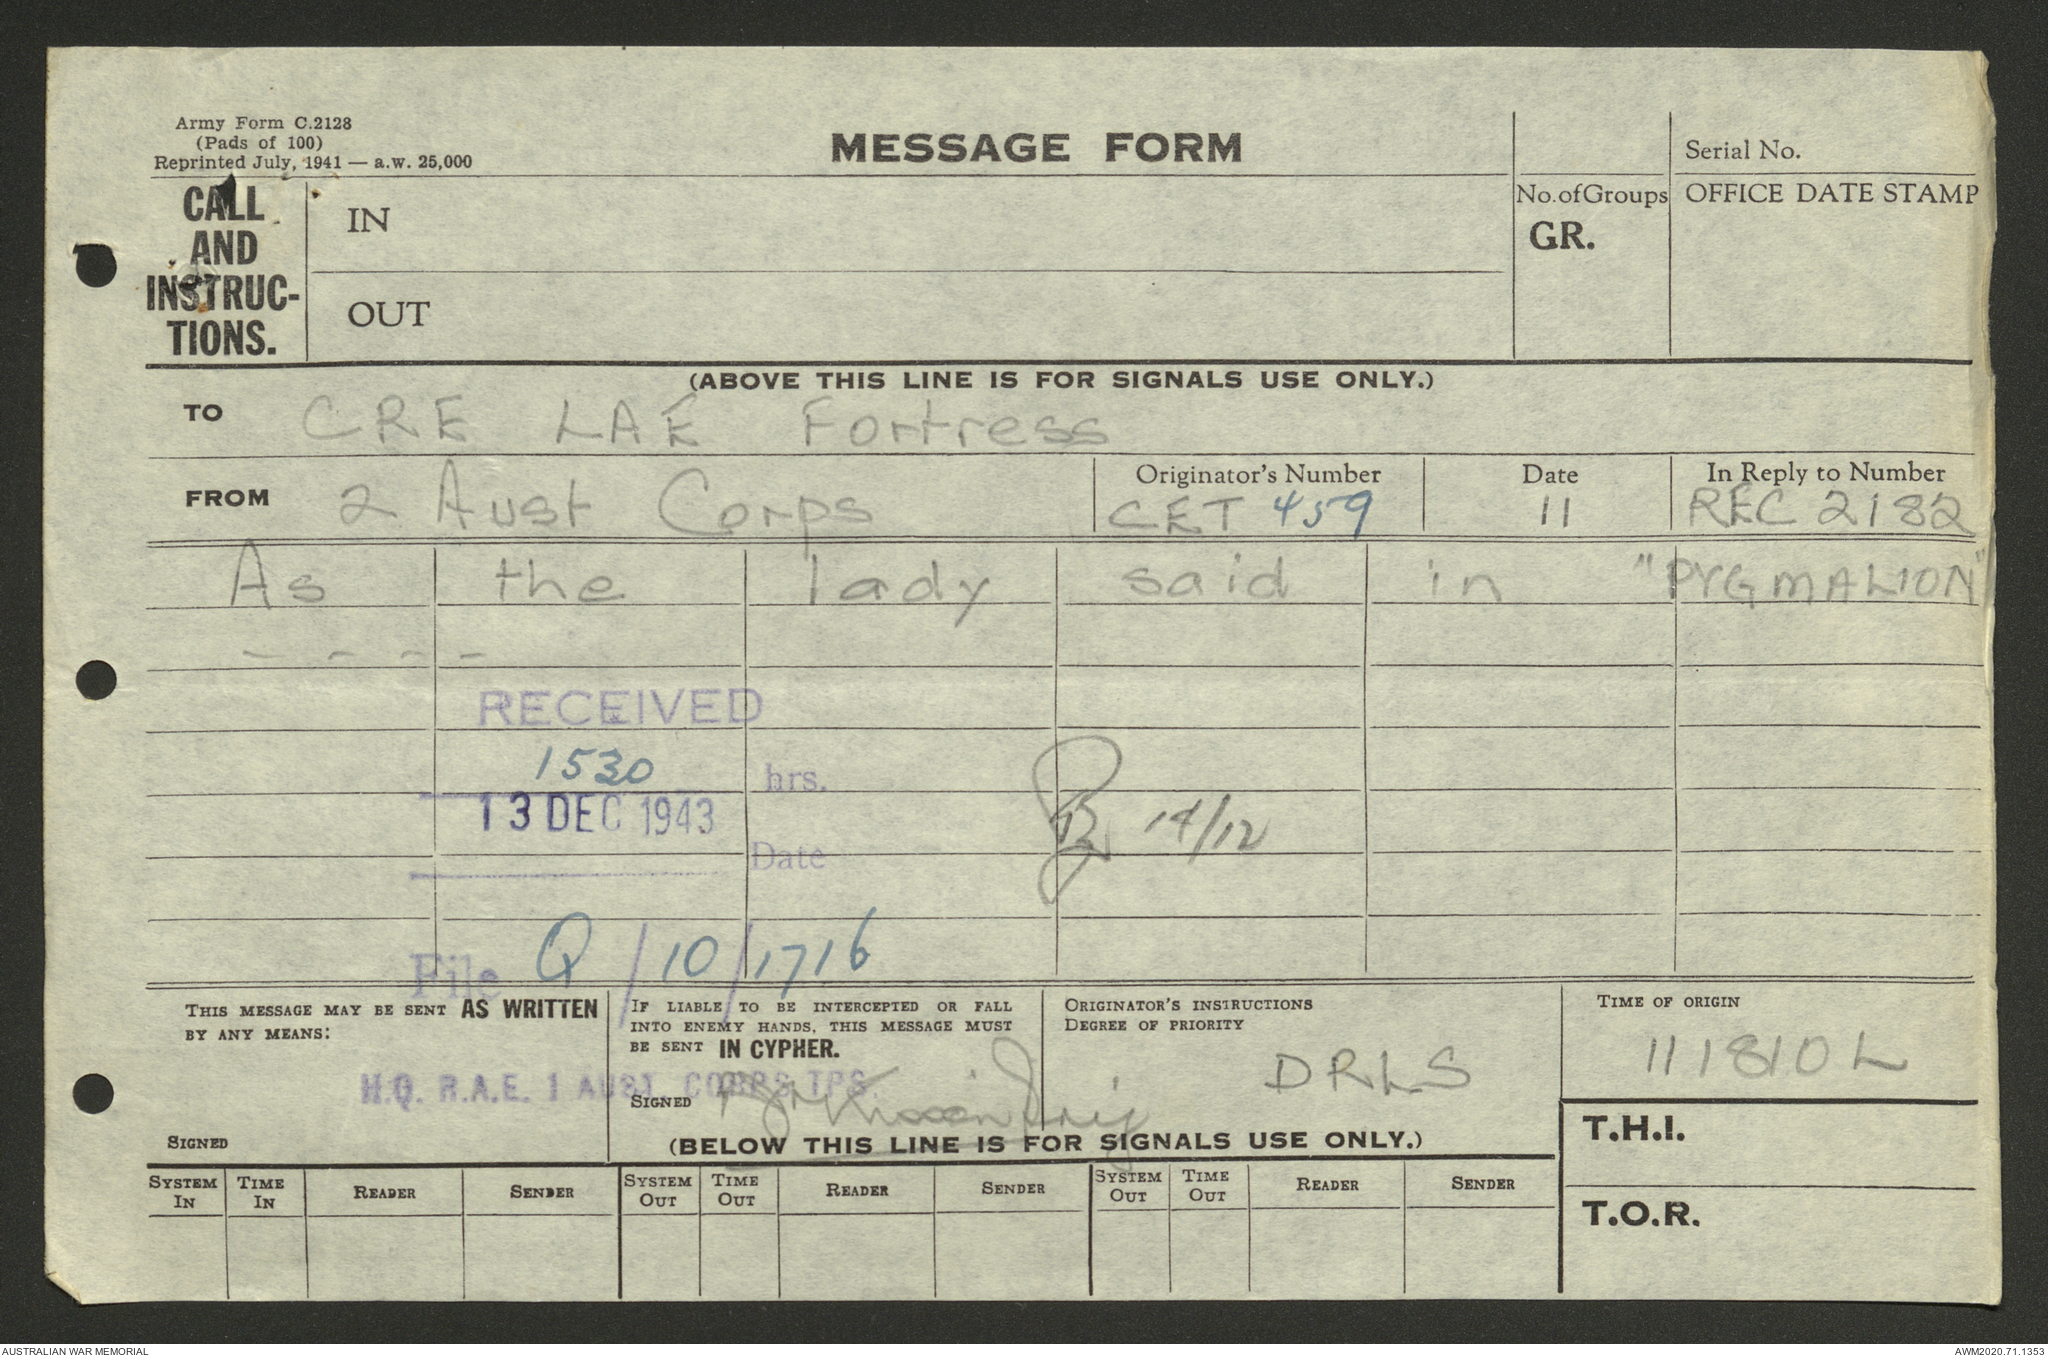 Army Form C.2128
(Pads of 100)
Reprinted July, 1941 — a.w. 25,000
MESSAGE FORM
Serial No.
CALL
AND
INSTRUC-
TIONS.
IN
OUT
No. of Groups
GR.
OFFICE DATE STAMP
(ABOVE THIS LINE IS FOR SIGNALS USE ONLY.)
TO CRE LAE Fortress
FROM 2 Aust Corps
Originator's Number
CET 459
Date
11
In Reply to Number
REC 2182
As the lady said in "PYGMALION"
- - - -
RECEIVED
1530 hrs.
13 DEC 1943
Date
14/12
File Q/10/1716
THIS MESSAGE MAY BE SENT AS WRITTEN
BY ANY MEANS:
SIGNED
IF LIABLE TO BE INTERCEPTED OR FALL
INTO ENEMY HANDS, THIS MESSAGE MUST
BE SENT IN CYPHER.
SIGNED
H.Q. R.A.E. 1 AUST. CORPS TPS.
ORIGINATOR'S INSTRUCTIONS
DEGREE OF PRIORITY
DRLS
TIME OF ORIGIN
111810 L
T.H.I.
T.O.R.
(BELOW THIS LINE IS FOR SIGNALS USE ONLY.)
SYSTEM IN TIME IN READER SENDER SYSTEM OUT TIME OUT READER SENDER SYSTEM OUT TIME OUT READER SENDER
AUSTRALIAN WAR MEMORIAL
AWM2020.71.1353